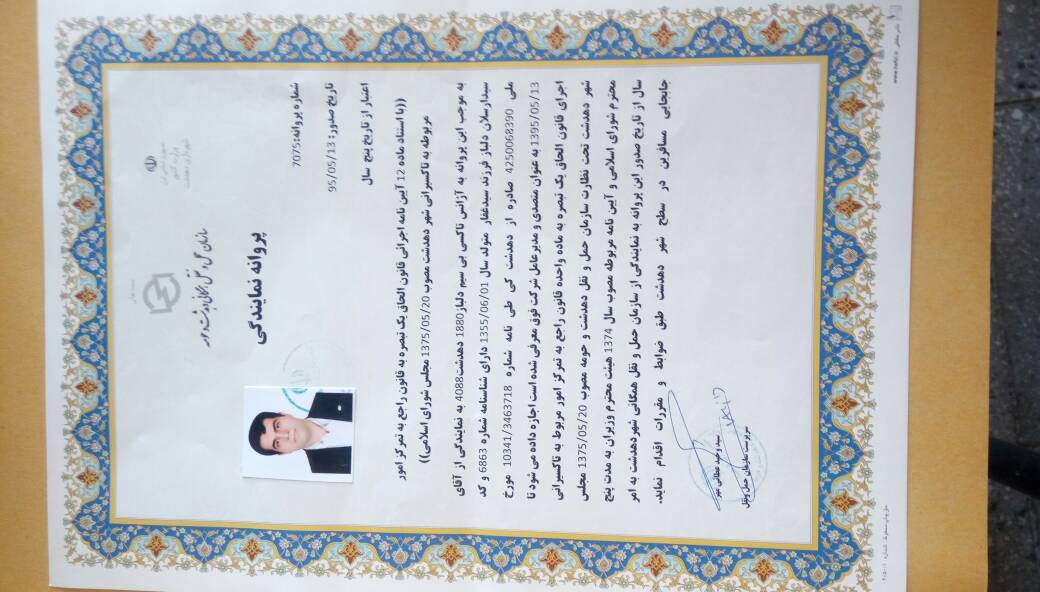 جمهوری اسلامی ایران
وزارت کشور
شهرداری دهدشت
سازمان حمل و نقل همگانی دهدشت و حومه
پروانه نمایندگی
شماره پروانه:7075
تاریخ صدور: 95/05/13
اعتبار از تاریخ پنج سال
((با استناد ماده 12 آیین نامه اجرائی قانون الحاق یک تبصره به قانون راجع به تمرکز امور
مربوطه به تاکسیرانی شهر دهدشت مصوب 1375/05/20 مجلس شورای اسلامی))
به موجب این پروانه به آژانس تاکسی بی سیم دلبار1880 دهدشت4088 به نمایندگی از آقای
سیدارسلان دلباز فرزند سیدغفار متولد سال 1355/06/01 دارای شناسنامه شماره 6863 و کد
ملی 4250068390 صادره از دهدشت کی طی نامه شماره 10341/3463718 مورخ
1395/05/13 به عنوان متصدی و مدیرعامل شرکت فوق معرفی شده است اجازه داده می شود تا
اجرای قانون الحاق یک تبصره به ماده واحده قانون راجع به تمرکز امور مربوط به تاکسیرانی
شهر دهدشت تحت نظارت سازمان حمل و نقل دهدشت و حومه مصوب 1375/05/20 مجلس
محترم شورای اسلامی و آیین نامه مربوطه مصوب سال 1374 هیئت محترم وزیران به مدت پنج
سال از تاریخ صدور این پروانه به نمایندگی از سازمان حمل و نقل همگانی شهردهدشت به امر
جابجایی مسافرین در سطح شهر دهدشت طبق ضوابط و مقررات اقدام نماید.
سید وحید عطائی مهر
سرپرست سازمان حمل ونقل